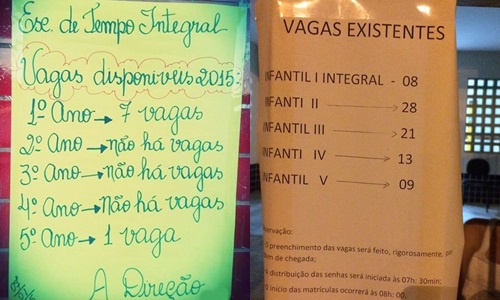 Esc. de Tempo Integral
Vagas disponíveis 2015:
1º Ano → 7 vagas
2º Ano → não há vagas
3º Ano → não há vagas
4º Ano → não há vagas
5º Ano → 1 vaga
A Direção
VAGAS EXISTENTES
INFANTIL I INTEGRAL - 08
INFANTI II → 28
INFANTIL III → 21
INFANTI IV → 13
INFANTIL V → 09
ervação:
O preenchimento das vagas será feito, rigorosamente, por
em de chegada;
distribuição das senhas será iniciada às 07h: 30min;
O início das matrículas ocorrerá às 08h: 00